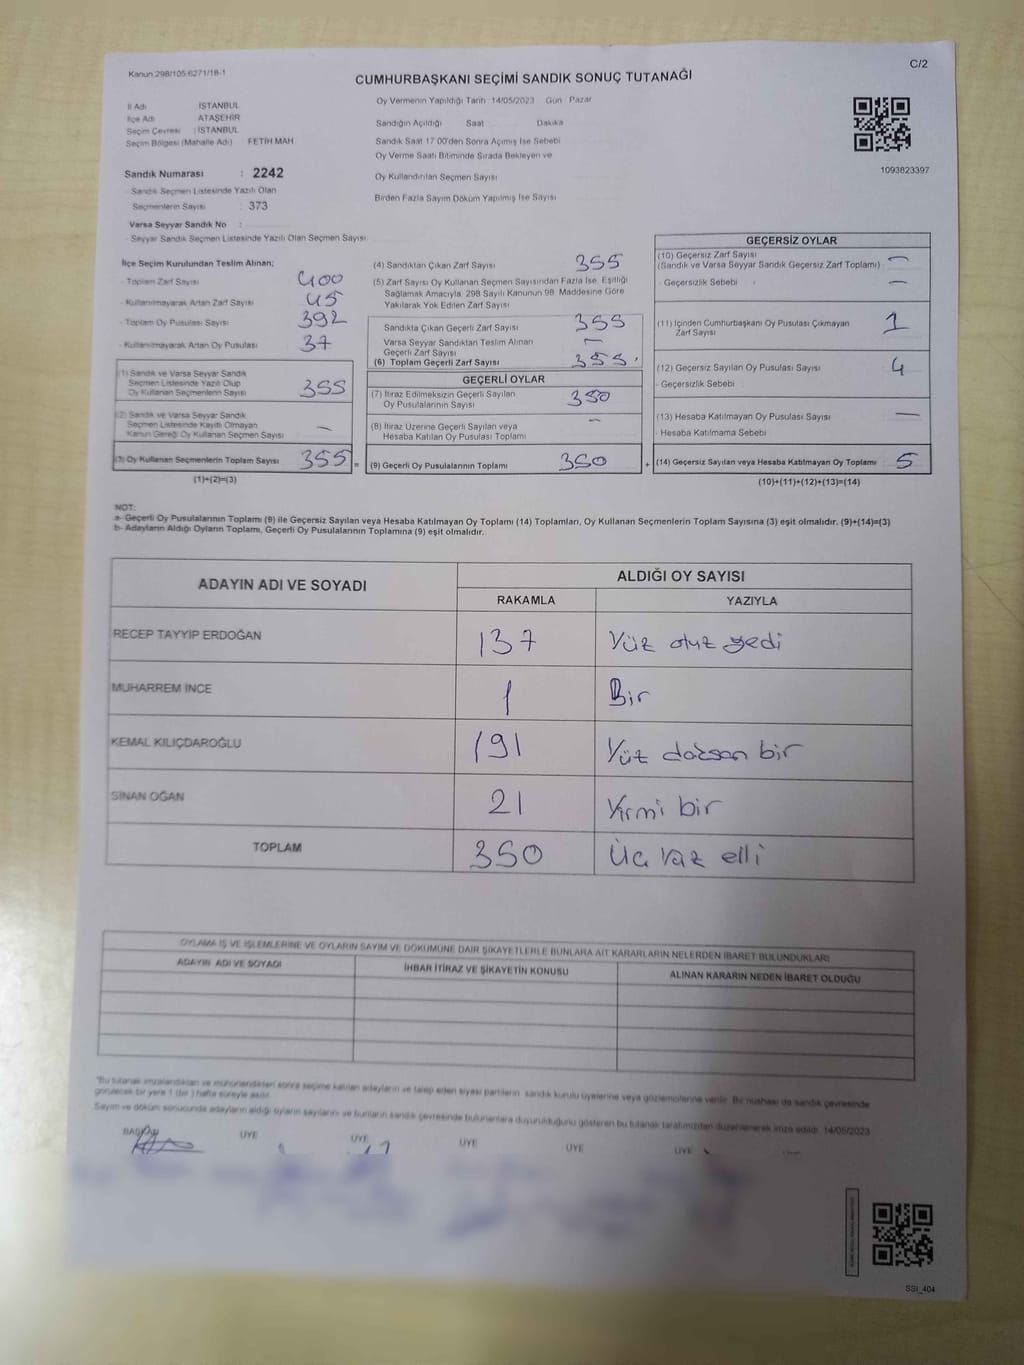 Kanun:298/105;6271/18-1
C/2
CUMHURBAŞKANI SEÇİMİ SANDIK SONUÇ TUTANAĞI
İl Adı İSTANBUL
İlçe Adı ATAŞEHİR
Seçim Çevresi : İSTANBUL
Seçim Bölgesi (Mahalle Adı) FETİH MAH
Sandık Numarası : 2242
Sandık Seçmen Listesinde Yazılı Olan
Seçmenlerin Sayısı : 373
Varsa Seyyar Sandık No :
- Seyyar Sandık Seçmen Listesinde Yazılı Olan Seçmen Sayısı
Oy Vermenin Yapıldığı Tarih 14/05/2023 Gün Pazar
Sandığın Açıldığı Saat Dakika
Sandık Saat 17.00'den Sonra Açımış İse Sebebi
Oy Verme Saati Bitiminde Sırada Bekleyen ve
Oy Kullandırılan Seçmen Sayısı
Birden Fazla Sayım Döküm Yapılmış İse Sayısı
1093823397
İlçe Seçim Kurulundan Teslim Alınan;
- Toplam Zarf Sayısı 400
- Kullanılmayarak Artan Zarf Sayısı 45
- Toplam Oy Pusulası Sayısı 392
- Kullanılmayarak Artan Oy Pusulası 37
(1) Sandık ve Varsa Seyyar Sandık
Seçmen Listesinde Yazılı Olup
Oy Kullanan Seçmenlerin Sayısı 355
(2) Sandık ve Varsa Seyyar Sandık
Seçmen Listesinde Kayıtlı Olmayan
Kanun Gereği Oy Kullanan Seçmen Sayısı —
(3) Oy Kullanan Seçmenlerin Toplam Sayısı 355 =
(1)+(2)=(3)
(4) Sandıktan Çıkan Zarf Sayısı 355
(5) Zarf Sayısı Oy Kullanan Seçmen Sayısından Fazla İse, Eşitliği
Sağlamak Amacıyla, 298 Sayılı Kanunun 98. Maddesine Göre
Yakılarak Yok Edilen Zarf Sayısı
Sandıkta Çıkan Geçerli Zarf Sayısı 355
Varsa Seyyar Sandıktan Teslim Alınan
Geçerli Zarf Sayısı —
(6) Toplam Geçerli Zarf Sayısı 355
GEÇERLİ OYLAR
(7) İtiraz Edilmeksizin Geçerli Sayılan
Oy Pusulalarının Sayısı 350
(8) İtiraz Üzerine Geçerli Sayılan veya
Hesaba Katılan Oy Pusulası Toplamı —
(9) Geçerli Oy Pusulalarının Toplamı 350 +
GEÇERSİZ OYLAR
(10) Geçersiz Zarf Sayısı
(Sandık ve Varsa Seyyar Sandık Geçersiz Zarf Toplamı) —
- Geçersizlik Sebebi —
(11) İçinden Cumhurbaşkanı Oy Pusulası Çıkmayan
Zarf Sayısı 1
(12) Geçersiz Sayılan Oy Pusulası Sayısı 4
- Geçersizlik Sebebi
(13) Hesaba Katılmayan Oy Pusulası Sayısı —
- Hesaba Katılmama Sebebi
(14) Geçersiz Sayılan veya Hesaba Katılmayan Oy Toplamı 5
(10)+(11)+(12)+(13)=(14)
NOT:
a- Geçerli Oy Pusulalarının Toplamı (9) ile Geçersiz Sayılan veya Hesaba Katılmayan Oy Toplamı (14) Toplamları, Oy Kullanan Seçmenlerin Toplam Sayısına (3) eşit olmalıdır. (9)+(14)=(3)
b- Adayların Aldığı Oyların Toplamı, Geçerli Oy Pusulalarının Toplamına (9) eşit olmalıdır.
ADAYIN ADI VE SOYADI
ALDIĞI OY SAYISI
RAKAMLA YAZIYLA
RECEP TAYYİP ERDOĞAN 137 Yüz otuz yedi
MUHARREM İNCE 1 Bir
KEMAL KILIÇDAROĞLU 191 Yüz doksan bir
SİNAN OĞAN 21 Yirmi bir
TOPLAM 350 Üç Yüz elli
OYLAMA İŞ VE İŞLEMLERİNE VE OYLARIN SAYIM VE DÖKÜMÜNE DAİR ŞİKAYETLERLE BUNLARA AİT KARARLARIN NELERDEN İBARET BULUNDUKLARI
ADAYIN ADI VE SOYADI İHBAR İTİRAZ VE ŞİKAYETİN KONUSU ALINAN KARARIN NEDEN İBARET OLDUĞU
"Bu tutanak imzalandıktan ve mühürlendikten sonra seçime katılan adayların ve talep eden siyasi partilerin sandık kurulu üyelerine veya gözlemcilerine verilir. Bir nüshası da sandık çevresinde
görülecek bir yere 1 (bir) hafta süreyle asılır.
Sayım ve döküm sonucunda adayların aldığı oyların sayılarını ve bunların sandık çevresinde bulunanlara duyurulduğunu gösteren bu tutanak tarafımızdan düzenlenerek imza edildi. 14/05/2023
BAŞKAN ÜYE ÜYE ÜYE ÜYE ÜYE
SSİ_404